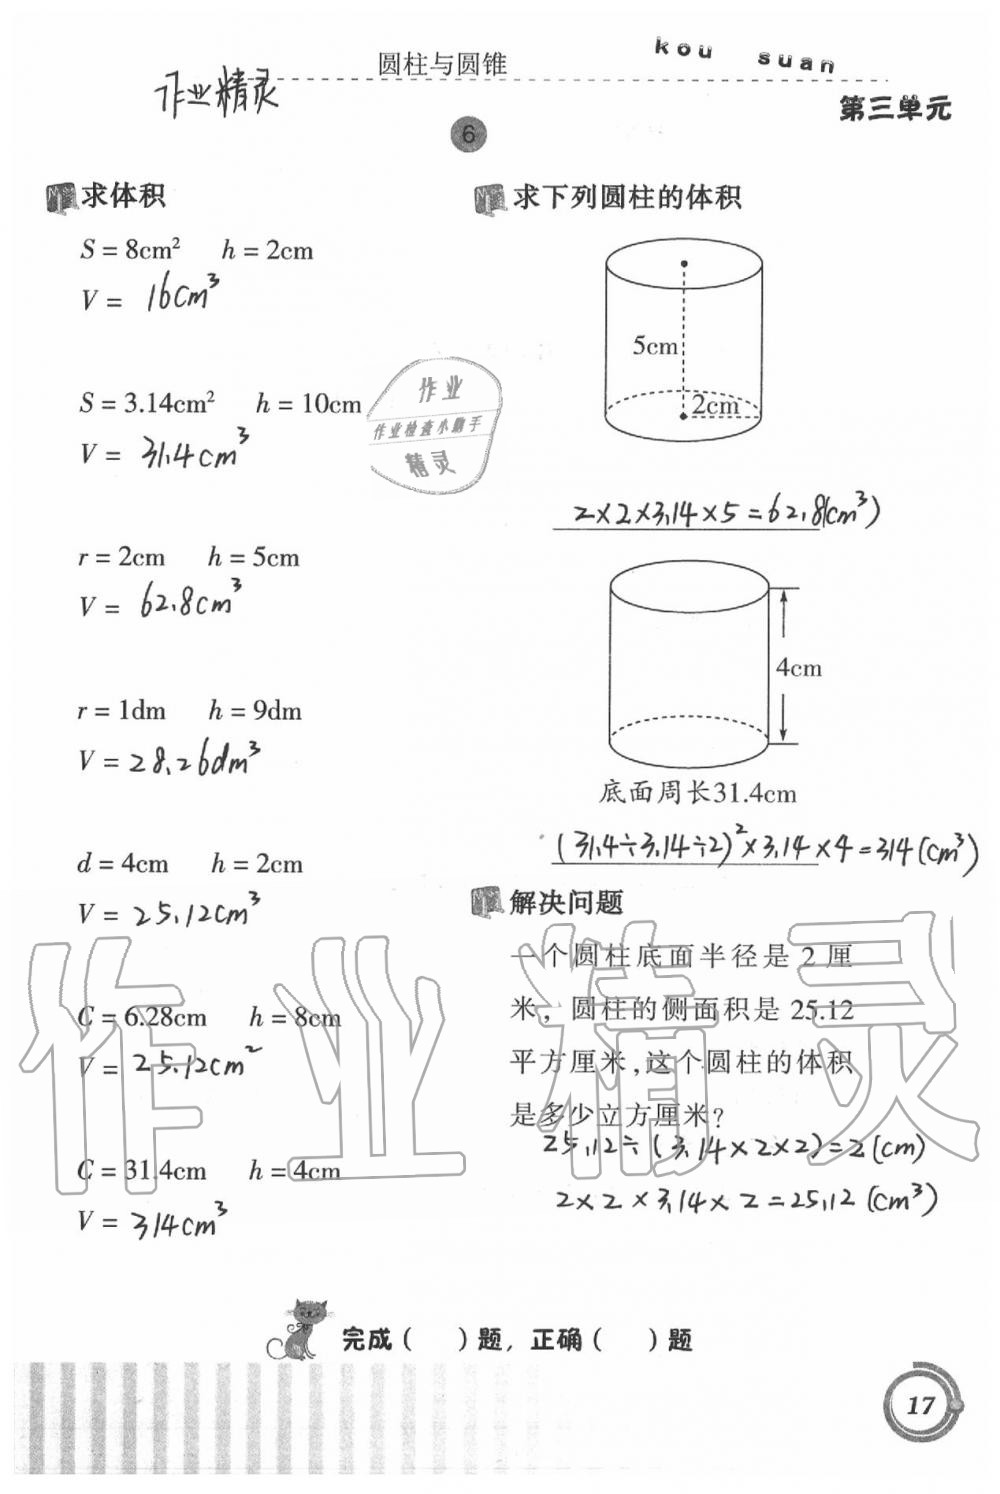 圆柱与圆锥
kou suan
作业精灵
第三单元
6
求体积
S = 8cm² h = 2cm
V = 16cm³
S = 3.14cm² h = 10cm
V = 31.4cm³
r = 2cm h = 5cm
V = 62.8cm³
r = 1dm h = 9dm
V = 28.26dm³
d = 4cm h = 2cm
V = 25.12cm³
C = 6.28cm h = 8cm
V = 25.12cm²
C = 31.4cm h = 4cm
V = 314cm³
作业
作业检查小助手
精灵
求下列圆柱的体积
5cm
2cm
2×2×3.14×5=62.8(cm³)
4cm
底面周长31.4cm
(31.4÷3.14÷2)²×3.14×4=314(cm³)
解决问题
一个圆柱底面半径是 2 厘
米，圆柱的侧面积是 25.12
平方厘米，这个圆柱的体积
是多少立方厘米？
25.12÷(3.14×2×2)=2(cm)
2×2×3.14×2=25.12(cm³)
作业精灵
完成（ ）题，正确（ ）题
17